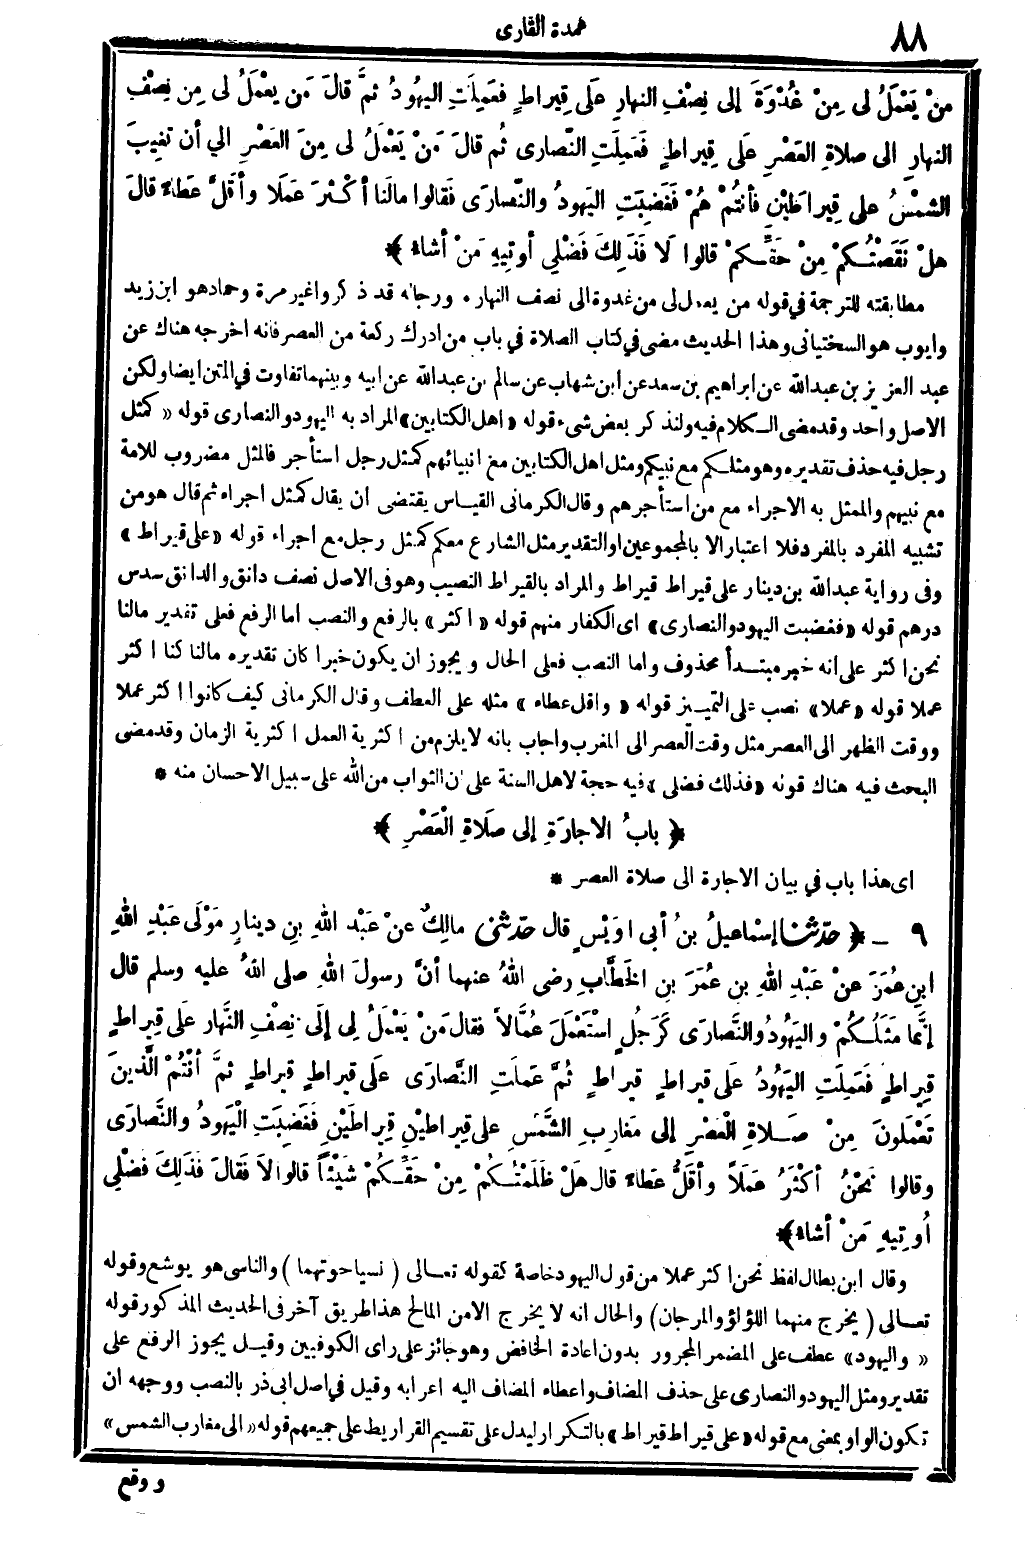 ٨٨
عمدة القارى
مَنْ يَعْمَلُ لِى مِنْ غُدْوَةَ إلى نِصْفِ النهارِ عَلَى قِيراطٍ فعَمِلَتِ اليَهُودُ ثمَّ قالَ مَن يَعْمَلُ لِى مِن نِصْفِ
النهارِ الى صلاةِ العَصْرِ عَلَى قِيراطٍ فَعَمِلَتِ النَّصارى ثُم قالَ مَنْ يَعْمَلُ لِى مِنَ العَصْرِ الي أن تَغِيبَ
الشمْسُ على قِيراطَيْنِ فأنتُمْ هُمْ فَغَضِبَتِ اليَهودُ والنَّصارَى فَقالوا مالَنا أكْثرَ عَمَلًا وأقَلَّ عَطاءً قالَ
هلْ نَقَصْتُكُمْ مِنْ حَقِّكمْ قالوا لَا فَذَلِكَ فَضْلِى أوتِيهِ مَنْ أشاءُ ﴾
مطابقته للترجمة في قوله من يعمل لى من غدوة الى نصف النهار . ورجاله قد ذكروا غير مرة وحماد هو ابن زيد
وايوب هو السختيانى وهذا الحديث مضى في كتاب الصلاة في باب من ادرك ركعة من العصر فانه اخرجه هناك عن
عبد العزيز بن عبدالله عن ابراهيم بن سعد عن ابن شهاب عن سالم بن عبدالله عن ابيه وبينهما تفاوت في المتن ايضا ولكن
الاصل واحد وقد مضى الكلام فيه ولنذكر بعض شىء قوله «اهل الكتابين» المراد به اليهود والنصارى قوله « كمثل
رجل فيه حذف تقديره وهو مثلكم مع نبيكم ومثل اهل الكتابين مع انبيائهم كمثل رجل استأجر فالمثل مضروب للامة
مع نبيهم والممثل به الاجراء مع من استأجرهم وقال الكرمانى القياس يقتضى ان يقال كمثل اجراء ثم قال هو من
تشبيه المفرد بالمفرد فلا اعتبار الا بالمجموعين او التقدير مثل الشارع معكم كمثل رجل مع اجراء قوله «على قيراط »
وفى رواية عبدالله بن دينار على قيراط قيراط والمراد بالقيراط النصيب وهو فى الاصل نصف دانق والدانق سدس
درهم قوله «فغضبت اليهود والنصارى» اى الكفار منهم قوله « اكثر » بالرفع والنصب اما الرفع فعلى تقدير مالنا
نحن اكثر على انه خبر مبتدأ محذوف واما النصب فعلى الحال ويجوز ان يكون خبرا كان تقديره مالنا كنا اكثر
عملا قوله «عملا» نصب على التمييز قوله « واقل عطاء » مثله على العطف وقال الكرمانى كيف كانوا اكثر عملا
ووقت الظهر الى العصر مثل وقت العصر الى المغرب واجاب بانه لا يلزم من اكثرية العمل اكثرية الزمان وقد مضى
البحث فيه هناك قوله «فذلك فضلى » فيه حجة لاهل السنة على ان الثواب من الله على سبيل الاحسان منه *
﴿ بابُ الاجارَةِ إلى صلَاةِ الْعَصْرِ ﴾
اى هذا باب في بيان الاجارة الى صلاة العصر *
٩ ـ ﴿ حدّثنا إسْماعيلُ بنُ أبى اوَيْسٍ قال حدّثنى مالِكٌ عنْ عَبْدِ اللهِ بنِ دينارٍ مَوْلَى عَبْدِ اللهِ
ابنِ عُمَرَ عنْ عَبْدِ اللهِ بنِ عُمَرَ بنِ الخَطَّابِ رضى اللهُ عنهما أنَّ رسولَ اللهِ صلى اللهُ عليه وسلم قال
إنَّما مَثَلُكُمْ واليَهُودُ والنَّصارَى كَرَجُلٍ اسْتَعْمَلَ عُمَّالاً فقال مَنْ يَعْمَلُ لِى إلَى نِصْفِ النَّهار علَى قِيراطٍ
قِيراطٍ فَعَمِلَتِ اليَهُودُ عَلَى قيراطٍ قيراطٍ ثُمَّ عَمِلَتِ النَّصارَى عَلَى قيراطٍ قيراطٍ ثمَّ أنْتُمُ الَّذينَ
تَعْمَلونَ مِنْ صَلاةِ الْعَصْرِ إلى مَغارِبِ الشَّمْسِ على قِيراطَيْنِ قِيراطَيْنِ فَغَضِبَتِ الْيَهودُ والنَّصارَى
وقالوا نَحْنُ أكْثَرُ عَمَلاً وأقَلُّ عَطاءً قال هَلْ ظَلَمْتُكُمْ مِنْ حَقِّكُمْ شَيْئاً قالوا لاَ فَقالَ فَذَلِكَ فَضْلِى
أُوتِيهِ مَنْ أشاءُ﴾
وقال ابن بطال لفظ نحن اكثر عملا من قول اليهود خاصة كقوله تعالى ( نسيا حوتهما ) والناسى هو يوشع وقوله
تعالى ( يخرج منهما اللؤلؤ والمرجان) والحال انه لا يخرج الا من المالح هذا طريق آخر فى الحديث المذكور قوله
« واليهود» عطف على المضمر المجرور بدون اعادة الخافض وهو جائز على راى الكوفيين وقيل يجوز الرفع على
تقدير ومثل اليهود والنصارى على حذف المضاف واعطاء المضاف اليه اعرابه وقيل في اصل ابى ذر بالنصب ووجهه ان
تكون الواو بمعنى مع قوله «على قيراط قيراط» بالتكرار ليدل على تقسيم القراريط على جميعهم قوله «الى مغارب الشمس»
ووقع